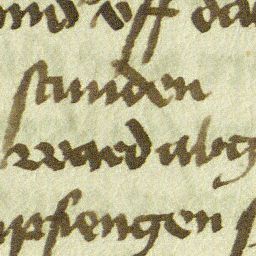 vnd vff da
stunden
ward abg
mpfiengen s